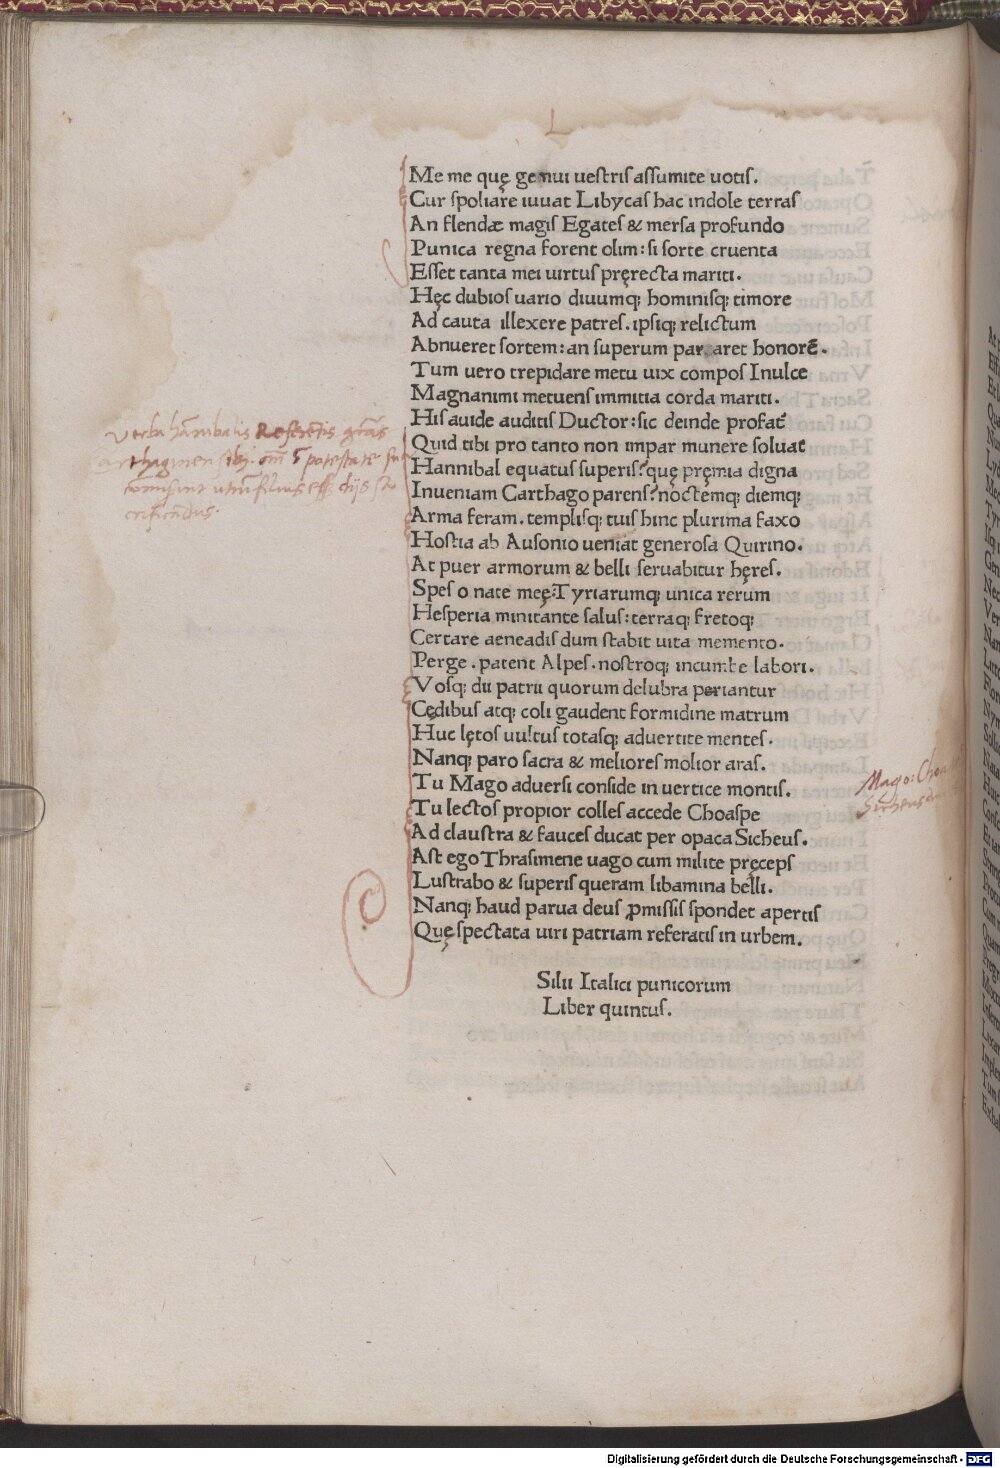 Me me quę genui uestris assumite uotis.
Cur spoliare iuuat Libycas hac indole terras
An flendæ magis Egates & mersa profundo
Punica regna forent olim: si sorte cruenta
Esset tanta mei uirtus pręrecta mariti.
Hęc dubios uario diuumq; hominisq; timore
Ad cauta illexere patres. ipsiq; relictum
Abnueret sortem: an superum par aret honorē.
Tum uero trepidare metu uix compos Inulce
Magnanimi metuens immitia corda mariti.
His auide auditis Ductor: sic deinde profat᷑
Quid tibi pro tanto non impar munere soluat
Hannibal equatus superis? quę pręmia digna
Inueniam Carthago parens? noctemq; diemq;
Arma feram. templisq; tuis hinc plurima faxo
Hostia ab Ausonio ueniat generosa Quirino.
At puer armorum & belli seruabitur hęres.
Spes o nate meę: Tyriarumq; unica rerum
Hesperia minitante salus: terraq; fretoq;
Certare aeneadis dum stabit uita memento.
Perge. patent Alpes. nostroq; incumbe labori.
Vosq; dii patrii quorum delubra periantur
Cędibus atq; coli gaudent formidine matrum
Huc lętos uultus totasq; aduertite mentes.
Nanq; paro sacra & meliores molior aras.
Tu Mago aduersi conside in uertice montis.
Tu lectos propior colles accede Choaspe
Ad claustra & fauces ducat per opaca Sicheus.
Ast ego Thrasimene uago cum milite pręceps
Lustrabo & superis queram libamina belli.
Nanq; haud parua deus ꝓmissis spondet apertis
Quę spectata uiri patriam referatis in urbem.
Silii Italici punicorum
Liber quintus.
Verba hānibalis Referētis grās
potestate
Mago:
Digitalisierung gefördert durch die Deutsche Forschungsgemeinschaft - DFG